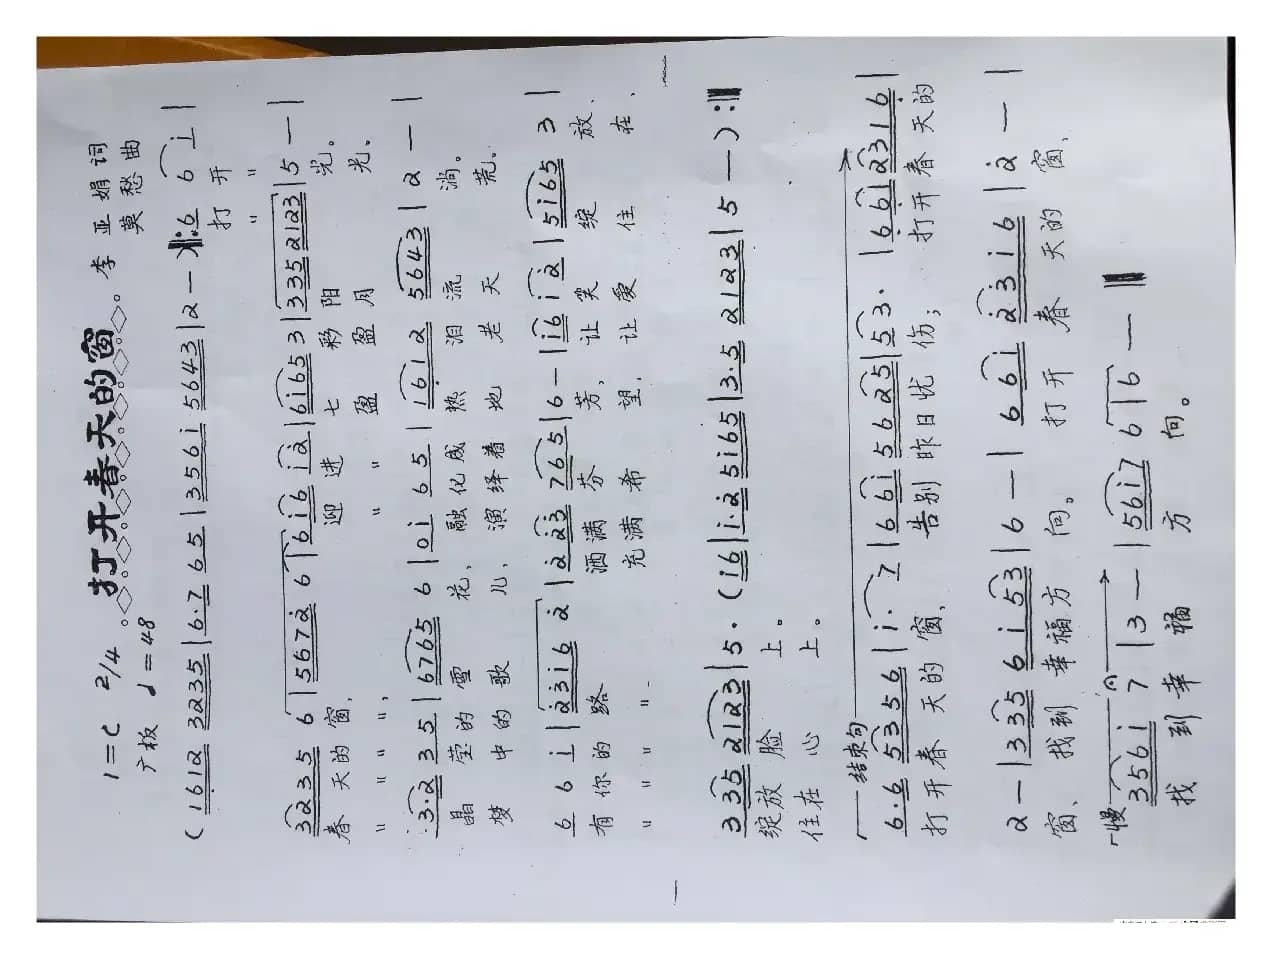 打开春天的窗
1=C 2/4
李亚娟 词
广板 ♩=48
莫愁 曲
(1612 3235|6·7 65|3561 5643|2 —)‖:6 6 i|
打 开
〃 〃
3235 6|5672 6|i6 i2|6165 3|335 2123|5 —|
春 天的 窗, 迎 进 七 彩 阳 光。
〃 〃 〃 〃, 〃 〃 盈 盈 月 光。
3·2 35|6765 6|0i 65|161 2|5643|2 —|
晶 莹的 雪 花, 融化成 热 泪 流 淌。
梦 中的 歌 儿, 演绎着 地 老 天 荒。
6 6 i|2316 2|223 765|6 —|i6 i2|5165 3|
有 你的 路 洒满 芬 芳, 让 笑 绽 放,
〃 〃 〃 〃 充满 希 望, 让 爱 住 在,
3 35 2123|5·(i6|i·2 5165|3·5 2123|5 —):‖
绽放 脸 上。
住在 心 上。
结束句
6·6 5356|i· 7|6 6i 5625|53·|6 6i 2316|
打开春 天的 窗, 告别 昨日忧 伤; 打开春 天的
2 —|335 6i53|6 —|6 6i 2316|2 —|
窗, 找到 幸福方 向。 打 开 春 天的 窗,
慢
3561 7|3 —|5617 6|6 —‖
找 到 幸 福 方 向。